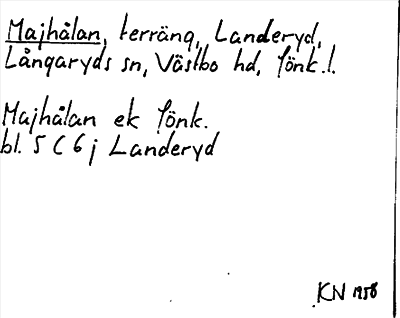 Majhålan, terräng, Landeryd,
Långaryds sn, Västbo hd, Jönk. l.
Majhålan ek Jönk.
bl. 5 C 6 j Landeryd
KN 1958